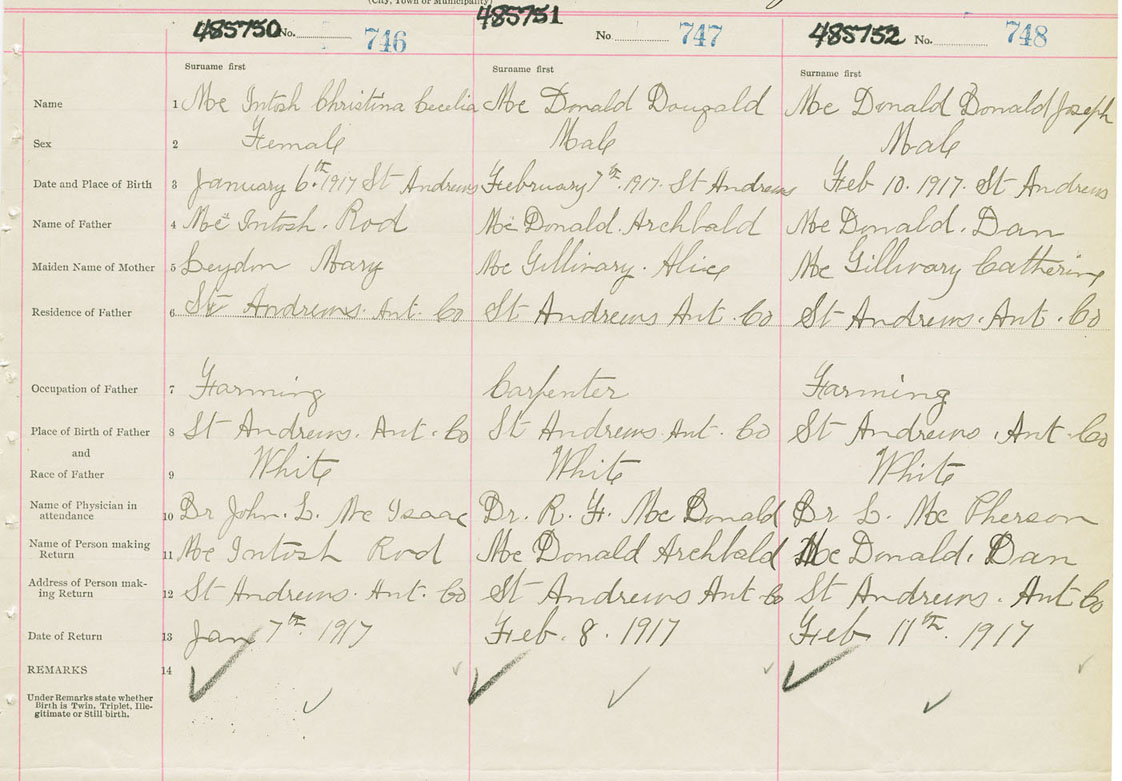 (City, Town or Municipality)
485750 No. 746 485751 No 747 485752 No. 748
Surname first Surname first Surname first
Name 1 Mc Intosh Christina Cecelia Mc Donald Dougald Mc Donald Donald Joseph
Sex 2 Female Male Male
Date and Place of Birth 3 January 6th. 1917 St Andrews February 7th. 1917. St Andrews Feb 10. 1917. St Andrews
Name of Father 4 Mc Intosh. Rod Mc Donald. Archbald Mc Donald. Dan
Maiden Name of Mother 5 Leydon Mary Mc Gillivary. Alice Mc Gillivary Catherine
Residence of Father 6 St Andrews. Ant. Co St Andrews Ant. Co St Andrews. Ant. Co
Occupation of Father 7 Farming Carpenter Farming
Place of Birth of Father 8 St Andrews. Ant. Co St Andrews. Ant. Co St Andrews. Ant. Co
and
Race of Father 9 White White White
Name of Physician in
attendance 10 Dr John. L. Mc Isaac Dr. R. F. Mc Donald Dr L. Mc Pherson
Name of Person making
Return 11 Mc Intosh Rod Mc Donald Archbald Mc Donald. Dan
Address of Person mak-
ing Return 12 St Andrews. Ant. Co St Andrews Ant Co St Andrews. Ant Co
Date of Return 13 Jan 7th. 1917 Feb. 8. 1917 Feb 11th. 1917
REMARKS 14
Under Remarks state whether
Birth is Twin, Triplet, Ille-
gitimate or Still birth.